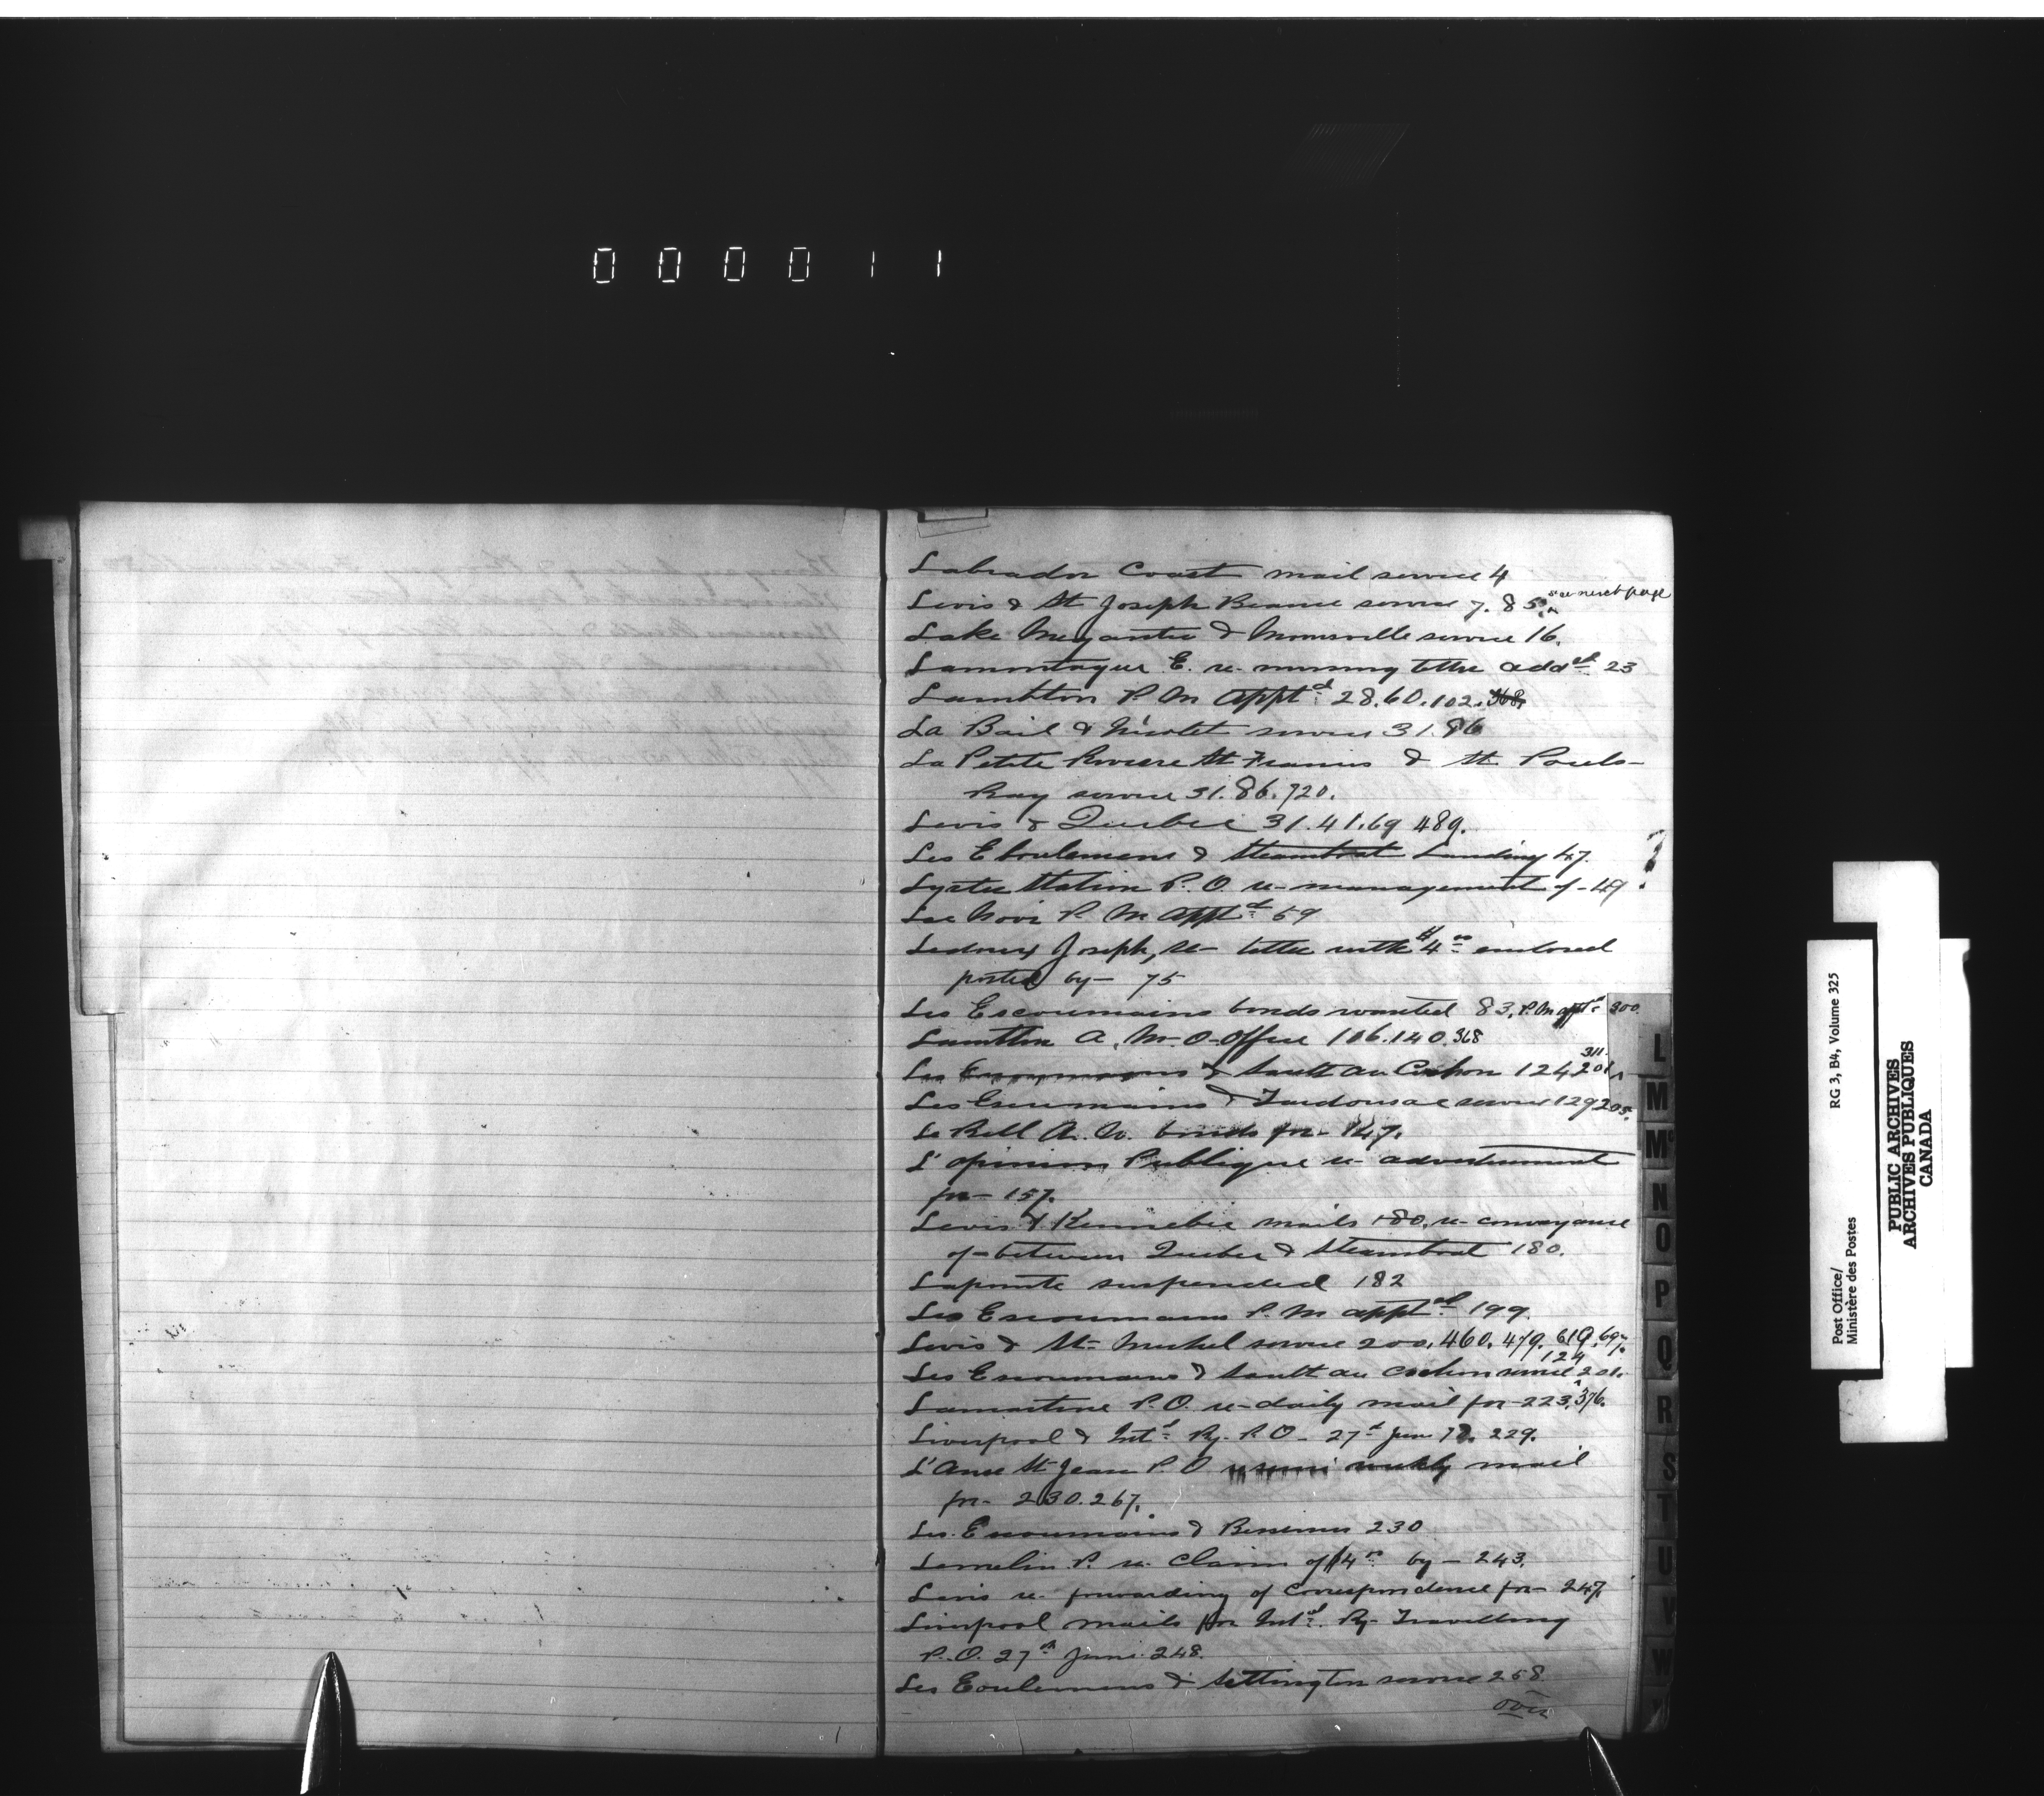 000011
Labrador Coast mail service 4
Levis & St Joseph Beauce service 7. 85. see next page
Lake Megantic & service 16.
Lamontagne E. re missing letter add^ed 23
Lambton P. M appt^d 28. 60. 102. 368.
La Baie & Nicolet service 31. 86
La Petite Riviere St Francis & St Pauls-
Bay service 31. 86. 720.
Levis & Quebec 31. 41. 69 489.
Les Eboulemens & Steamboat Landing 47.
Lyster Station P. O. re- management of - 49
?
Lac Noir P. M appt^d 59
Joseph, re- letter with $4^00 enclosed
posted by - 75
Les Escoumains bonds wanted 83. P. M appt^d 300
Lambton A. M-O-Office 106. 140. 368
Les Escoumains & Sault au Cochon 124 201 311.
Les Escoumains & Tadousac service 129 205.
Le Bell A. bonds for - 147.
L'opinion Publique re- advertisement
for - 157.
Levis & Kennebec mails 180. re- conveyance
of - between Quebec & Steamboat 180.
Lapointe suspended 182
Les Escoumains P. M appt^ed 199.
Levis & St Michel service 200. 460. 479. 619. 697.
Les Escoumains & Sault au Cochon service 124 201.
Lamartine P.O. re- daily mail for - 223. 376.
Liverpool & Int^l Ry. P. O - 27^th Jun 229.
L'Anse St Jean P. O re semi weekly mail
for - 230. 267.
Les Escoumains & 230
Lemelin P. re- Claim of $4^00 by - 243.
Levis re- forwarding of Correspondence for - 247.
Liverpool mails for Int^l. Ry- Travelling
P. O. 27^th June. 248.
Les Eboulemens & Settrington service 258
over
L
M
M^c
N
O
P
Q
R
S
T
U
V
W
Post Office/
Ministère des Postes
RG 3, B4, Volume 325
PUBLIC ARCHIVES
ARCHIVES PUBLIQUES
CANADA